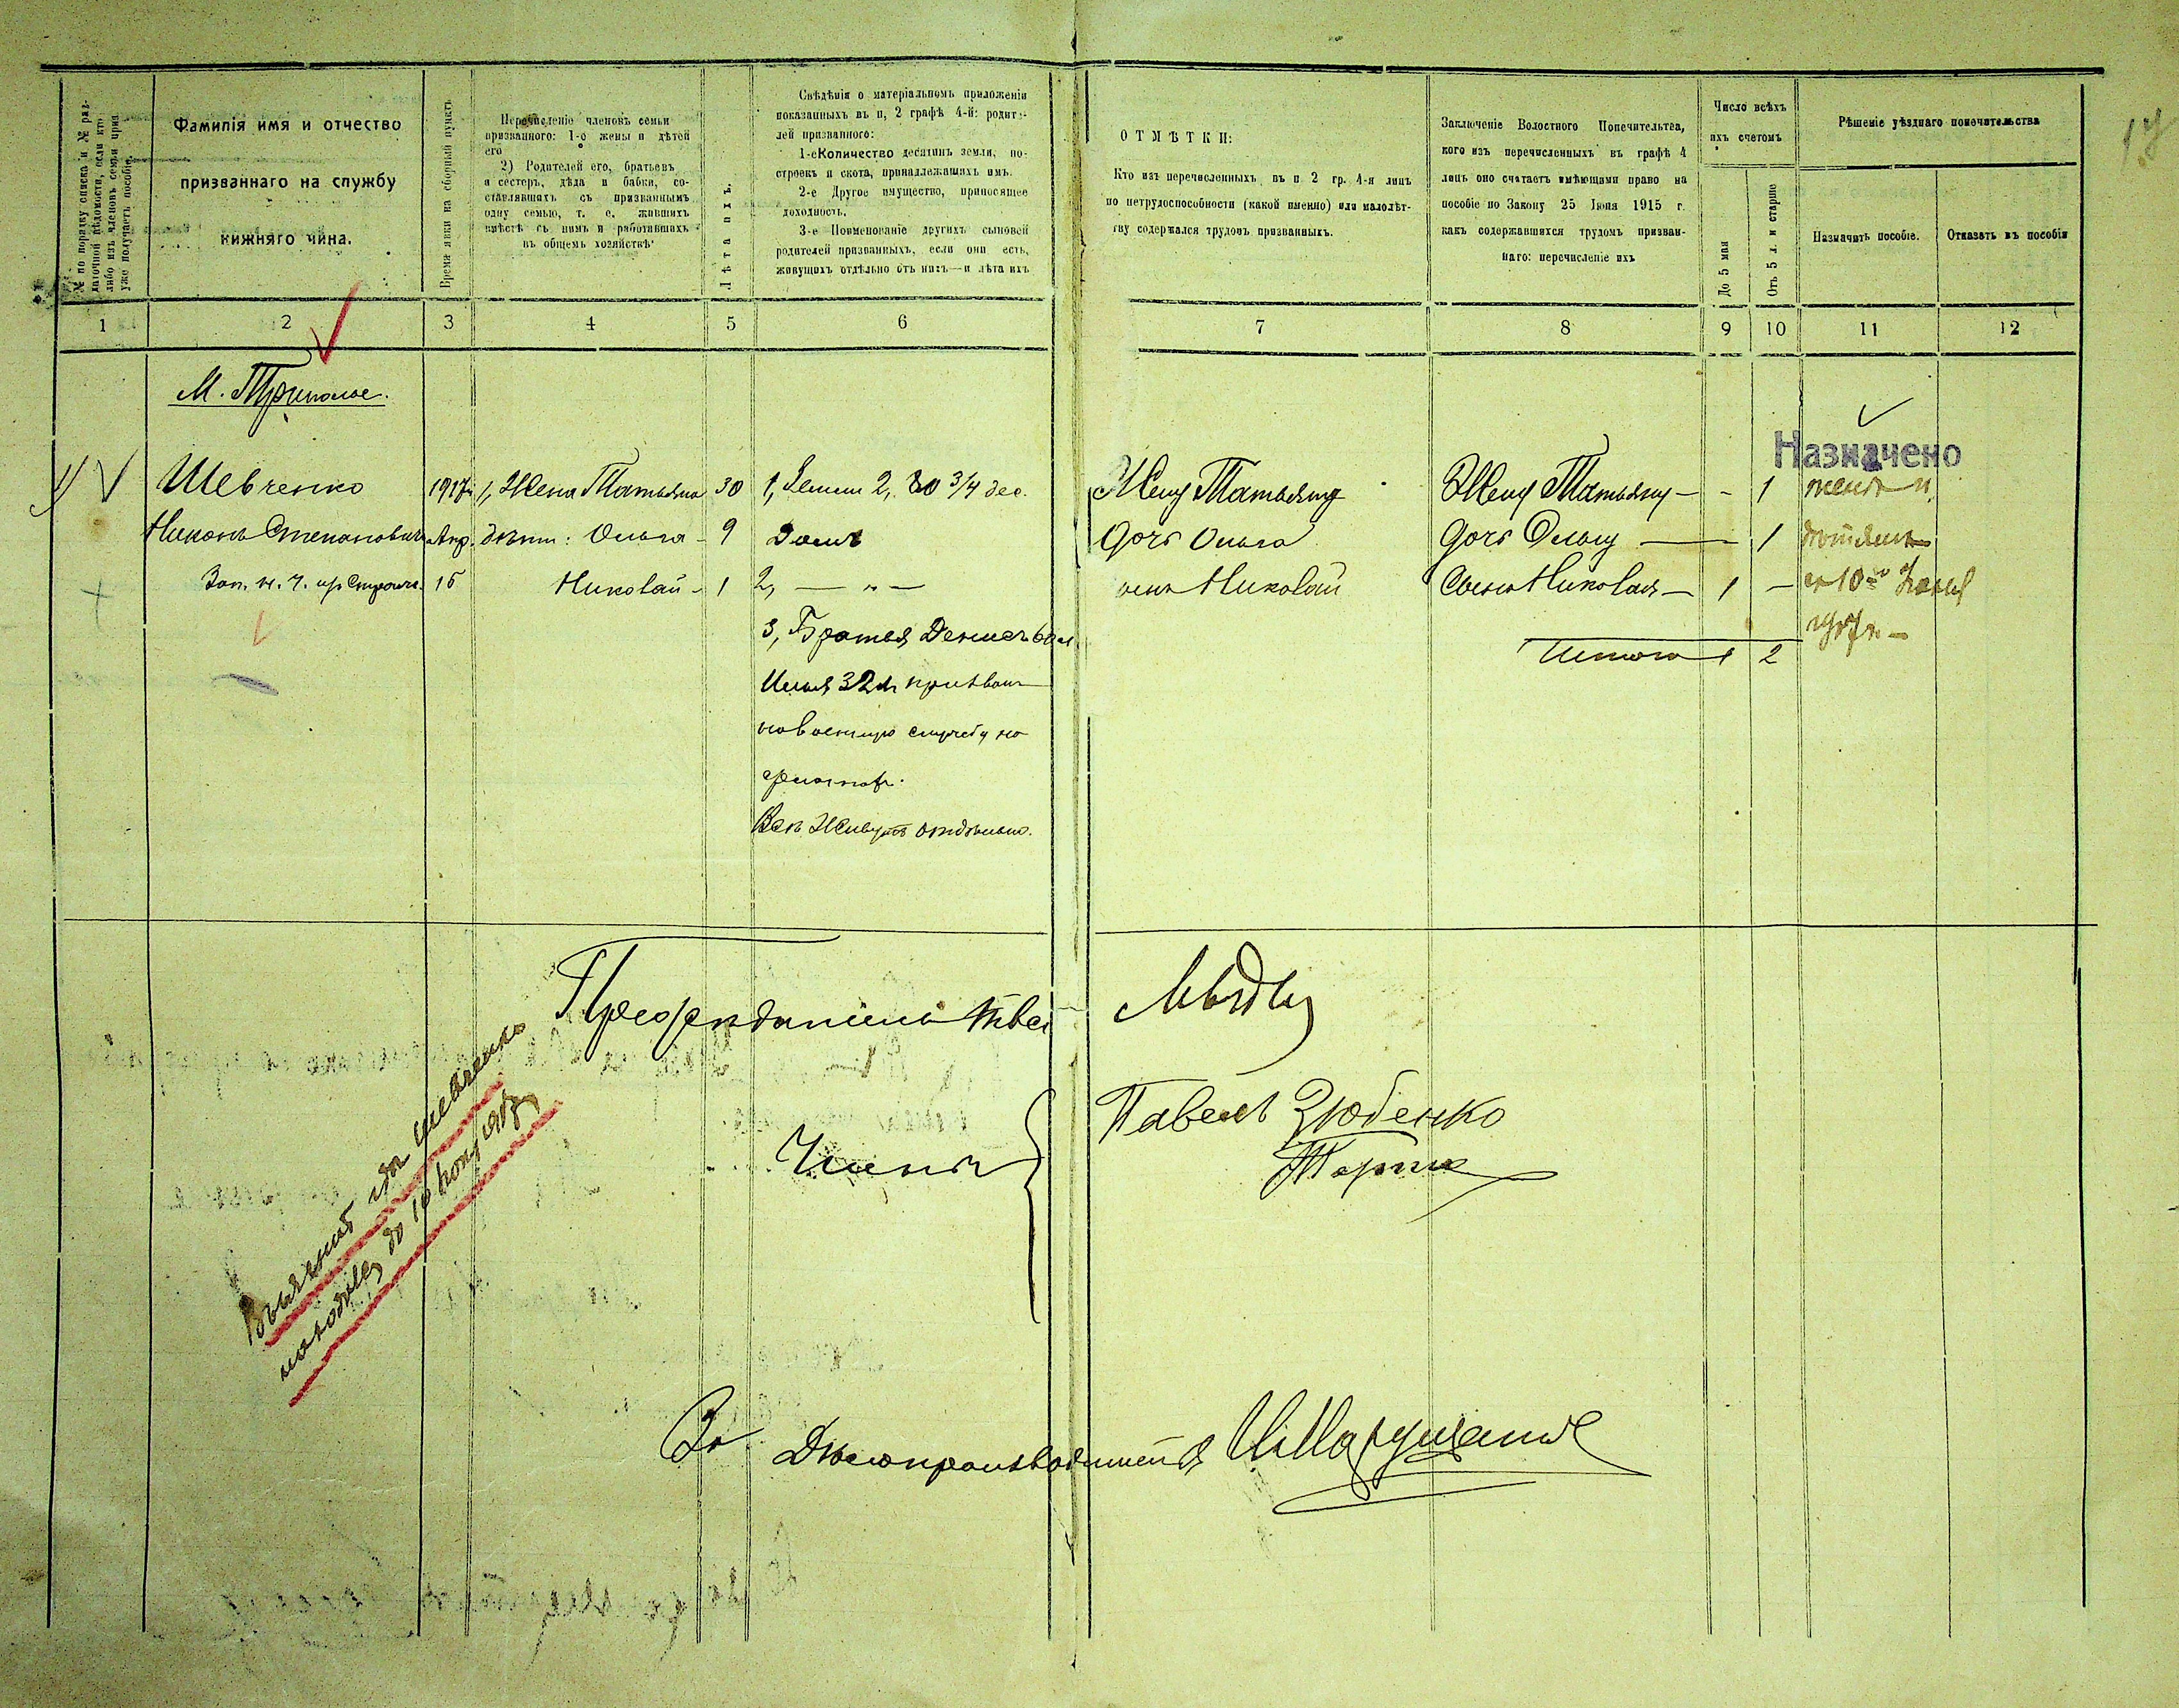 № по порядку списка и № раз-
даточной вѣдомости, если кто
либо изъ членовъ семьи приз.
уже получаетъ пособіе.
Фамилія имя и отчество
призваннаго на службу
нижняго чина.
Время явки на сборный пунктъ
Перечисленіе членовъ семьи
призваннаго: 1-е жены и дѣтей
его
2) Родителей его, братьевъ
и сестеръ, дѣда и бабки, со-
ставлявшихъ съ призваннымъ
одну семью, т. е. жившихъ
вмѣстѣ съ нимъ и работавшихъ
въ общемъ хозяйствѣ
Лѣта ихъ.
Свѣдѣнія о матеріальномъ приложеніи
показанныхъ въ п, 2 графѣ 4-й: родите-
лей призванного:
1-е Количество десятинъ земли, по-
строекъ и скота, принадлежащихъ имъ.
2-е Другое имущество, приносящее
доходность.
3-е Поименованіе другихъ сыновей
родителей призванныхъ, если они есть,
живущихъ отдѣльно отъ нихъ—и лѣта ихъ
ОТМѢТКИ:
Кто изъ перечисленныхъ въ п 2 гр. 4-я лицъ
по нетрудоспособности (какой именно) или малолѣт-
тву содержался трудомъ призванныхъ.
Заключеніе Волостного Попечительтва,
кого изъ перечисленныхъ въ графѣ 4
лицъ оно считаетъ имѣющими право на
пособіе по Закону 25 Іюня 1915 г.
какъ содержавшихся трудомъ призван-
наго: перечисленіе ихъ
Число всѣхъ
ихъ счетомъ
До 5 мая
Отъ 5 л. и старше
Рѣшеніе уѣзднаго попечительства
Назначить пособіе.
Отказать въ пособіи
17
1 2 3 4 5 6 7 8 9 10 11 12
М. Триполье.
Назначено
Шевченко 1917 г. 1, Жена Татьяна 30 1, Земли 2, 3/4 дес. Жену Татьяну Жену Татьяну — - 1 женѣ и
Никонъ Степановичъ Апр. дѣти: Ольга - 9 Домъ Дочь Ольга Дочь Ольгу — 1 дѣтямъ
Зап. н. ч. 15 Николай - 1 2, — „ — сынъ Николай Сына Николая — 1 — съ 10го
3, Братья Денисъ 60 л. 1917 г. —
Итого 1 2
Илья 32 л. призванъ
на военную службу по
Всѣ живутъ отдѣльно.
Предсѣдатель
Члены
Павелъ Зюбенко
Выяснить гдѣ Шевченко
находился до 10
За Дѣлопроизводителя